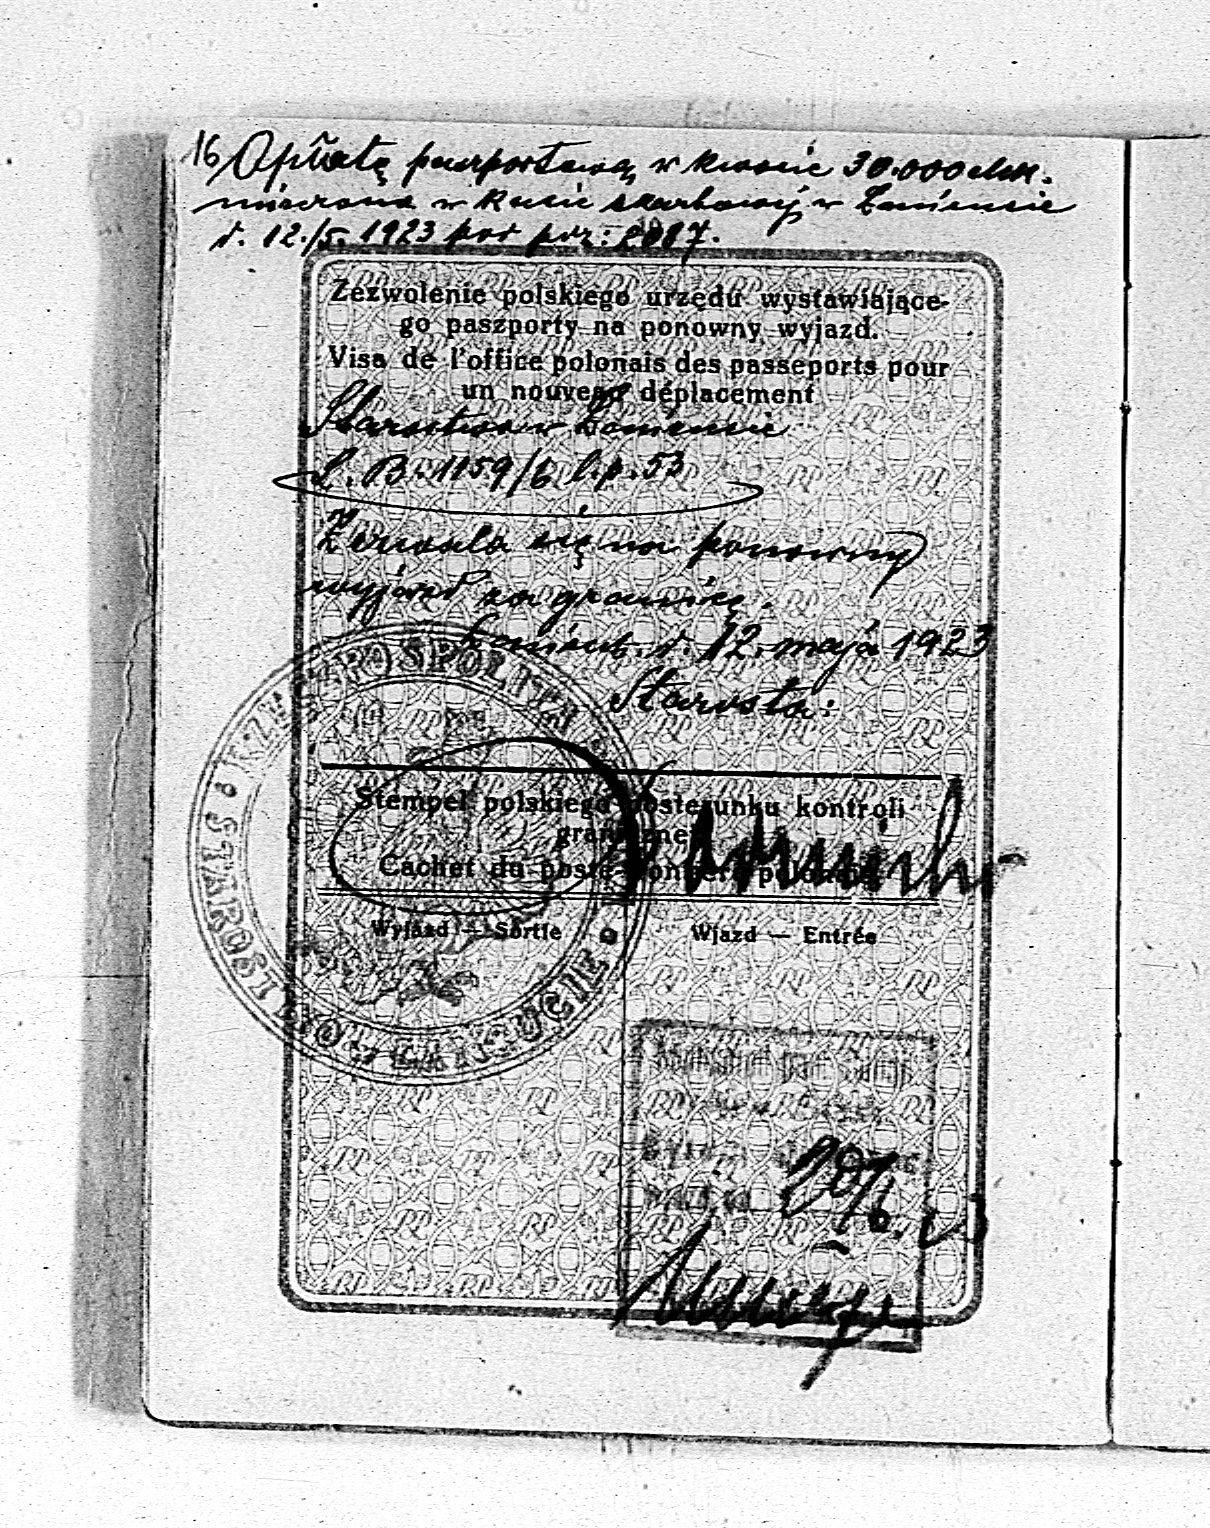 16 Opłatę paszportową w kwocie 30.000 Mk.
w kasie skarbowej w Łańcucie
d. 12./5. 1923 pod poz: 2887.
Zezwolenie polskiego urzędu wystawiające-
go paszporty na ponowny wyjazd.
Visa de l'office polonais des passeports pour
un nouveau déplacement
Starostwo w Łańcucie
L. B. 1159/6 l.p. 53
Zezwala się na ponowny
wyjazd za granicę.
Łańcut. d. 12. maja 1923
Starosta:
Stempel polskiego posterunku kontroli
granicznej
Cachet du poste polonais
Wyjazd — Sortie
Wjazd — Entrée
RZECZPOSPOLITA
STAROSTWO W ŁAŃCUCIE
20/6. 23